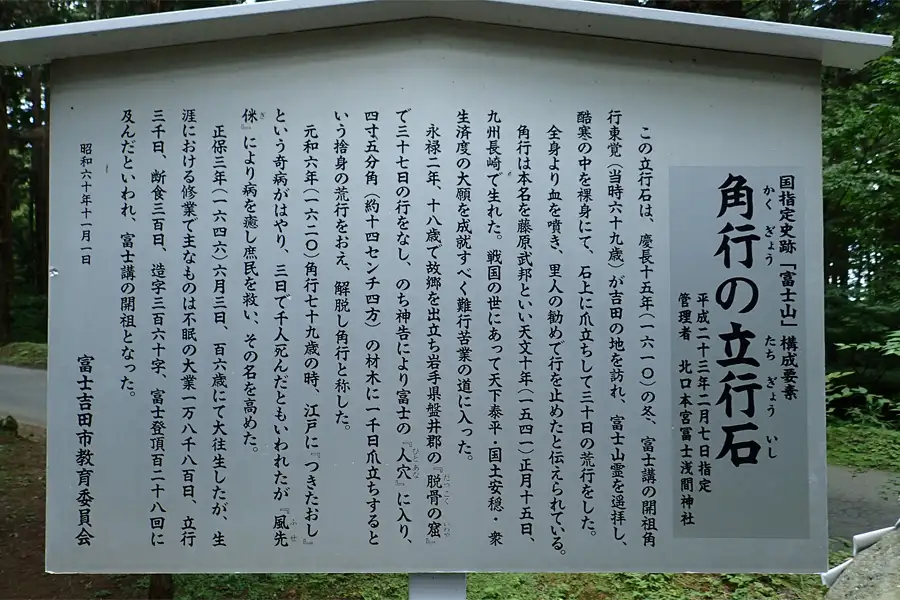 国指定史跡「富士山」構成要素
角行の立行石
かくぎょう たちぎょういし
平成二十三年二月七日指定
管理者 北口本宮冨士浅間神社
この立行石は、慶長十五年(一六一〇)の冬、富士講の開祖角
行東覚(当時六十九歳)が吉田の地を訪れ、富士山霊を遥拝し、
酷寒の中を裸身にて、石上に爪立ちして三十日の荒行をした。
全身より血を噴き、里人の勧めで行を止めたと伝えられている。
角行は本名を藤原武邦といい天文十年(一五四一)正月十五日、
九州長崎で生れた。戦国の世にあって天下泰平・国土安穏・衆
生済度の大願を成就すべく難行苦業の道に入った。
永禄二年、十八歳で故郷を出立ち岩手県盤井郡の『脱骨の窟』
だっこく いわや
で三十七日の行をなし、のち神告により富士の『人穴』に入り、
ひとあな
四寸五分角(約十四センチ四方)の材木に一千日爪立ちすると
いう捨身の荒行をおえ、解脱し角行と称した。
元和六年(一六二〇)角行七十九歳の時、江戸に『つきたおし』
という奇病がはやり、三日で千人死んだともいわれたが『風先
ふせ
侎』により病を癒し庶民を救い、その名を高めた。
ぎ
正保三年(一六四六)六月三日、百六歳にて大往生したが、生
涯における修業で主なものは不眠の大業一万八千八百日、立行
三千日、断食三百日、造字三百六十字、富士登頂百二十八回に
及んだといわれ、富士講の開祖となった。
昭和六十年十一月一日
富士吉田市教育委員会